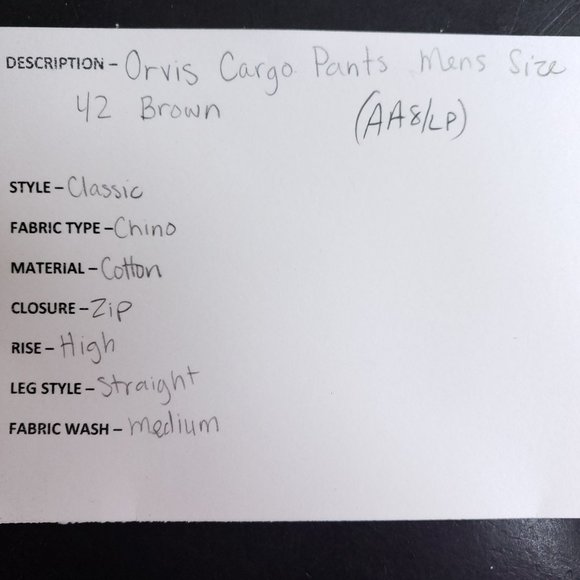 DESCRIPTION – Orvis Cargo Pants Mens Size
42 Brown (AA8/LP)
STYLE – Classic
FABRIC TYPE – Chino
MATERIAL – Cotton
CLOSURE – Zip
RISE – High
LEG STYLE – Straight
FABRIC WASH – Medium